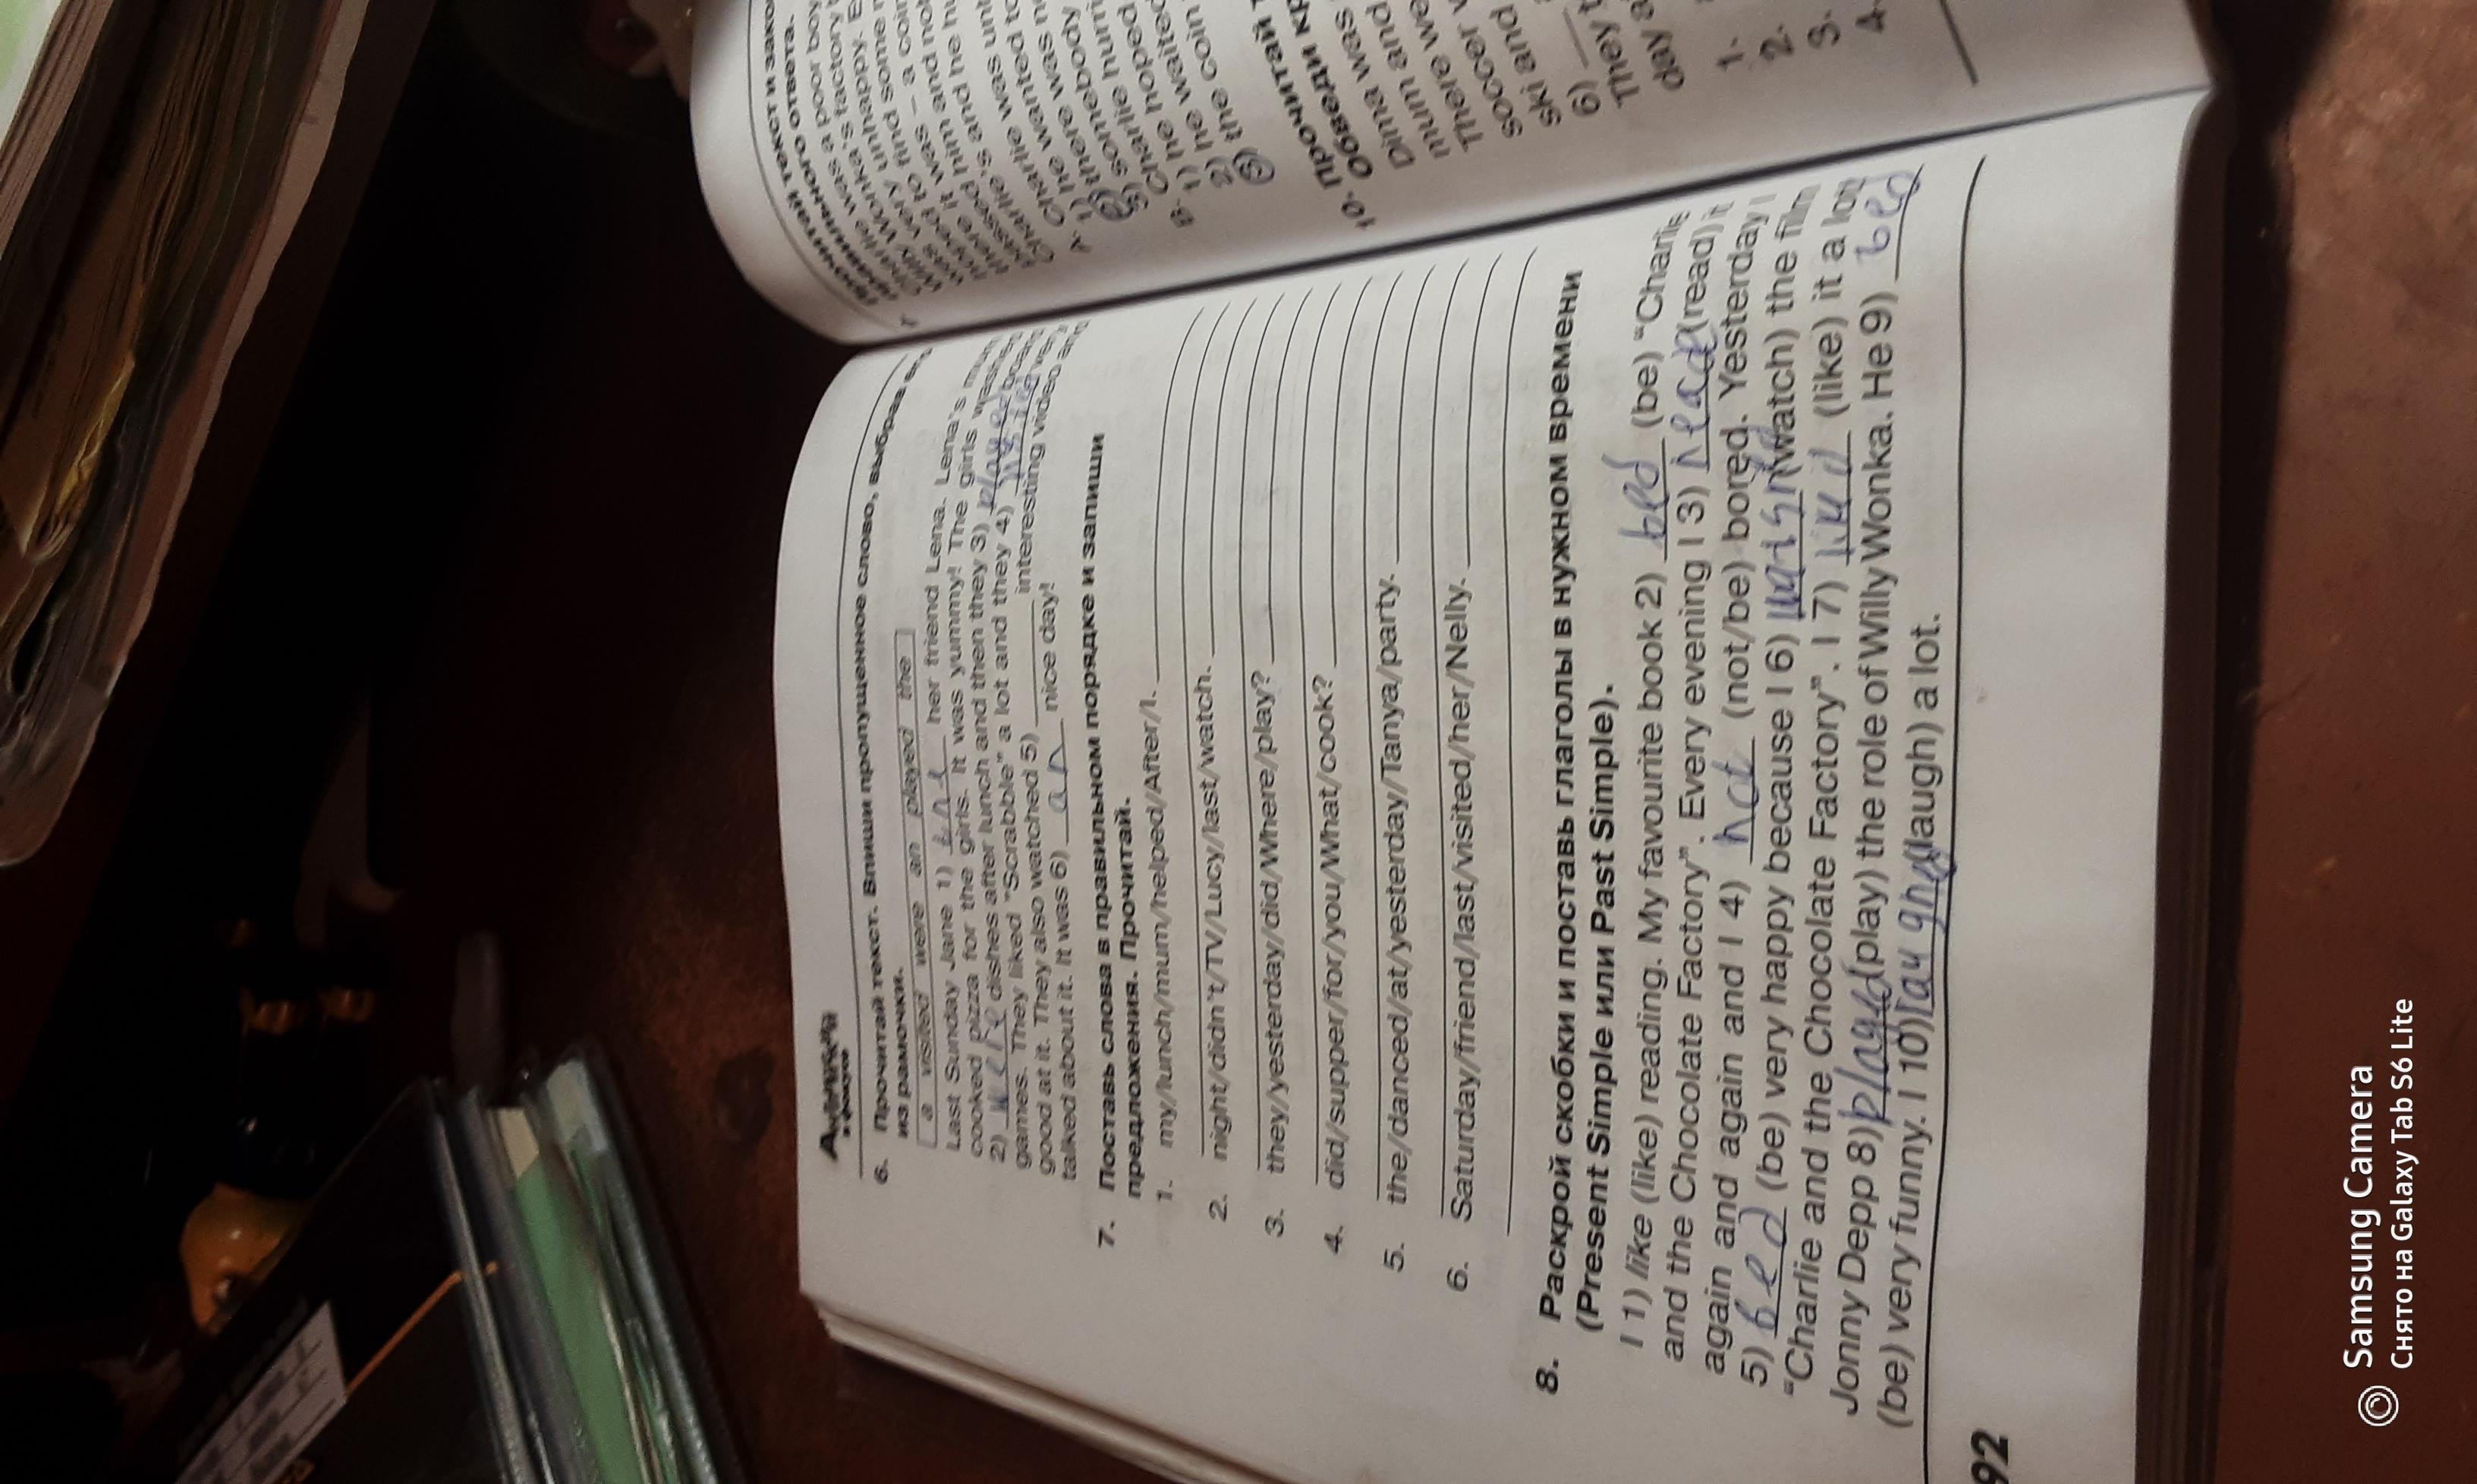 Английский
в фокусе
6. Прочитай текст. Впиши пропущенное слово, выбрав его
из рамочки.
a visited were an played the
Last Sunday Jane 1) the her friend Lena. Lena's mum
cooked pizza for the girls. It was yummy! The girls washed
2) were dishes after lunch and then they 3) played board
games. They liked "Scrabble" a lot and they 4) very
good at it. They also watched 5) interesting video and
talked about it. It was 6) an nice day!
7. Поставь слова в правильном порядке и запиши
предложения. Прочитай.
1. my/lunch/mum/helped/After/I.
2. night/didn't/TV/Lucy/last/watch.
3. they/yesterday/did/Where/play?
4. did/supper/for/you/What/cook?
5. the/danced/at/yesterday/Tanya/party.
6. Saturday/friend/last/visited/her/Nelly.
8. Раскрой скобки и поставь глаголы в нужном времени
(Present Simple или Past Simple).
I 1) like (like) reading. My favourite book 2) bed (be) "Charlie
and the Chocolate Factory". Every evening I 3) (read) it
again and again and I 4) not (not/be) bored. Yesterday I
5) bed (be) very happy because I 6) (watch) the film
"Charlie and the Chocolate Factory". I 7) (like) it a lot!
Jonny Depp 8) played (play) the role of Willy Wonka. He 9) bed
(be) very funny. I 10) laughed (laugh) a lot.
92
Прочитай текст и
правильного ответа.
Charlie was a poor boy
Willy Wonka's factory
was very unhappy.
hoped to find some
there it was – a coin
passed him and
Charlie's and he
A. Charlie was
1) he wanted to
2) there was
3) somebody
B. Charlie hoped
1) he
2) he waited
3) the coin
10. Прочитай
Обведи
Dima was
mum and
There
soccer
ski and
6)
They
day
1.
2.
3.
4.
Samsung Camera
Снято на Galaxy Tab S6 Lite